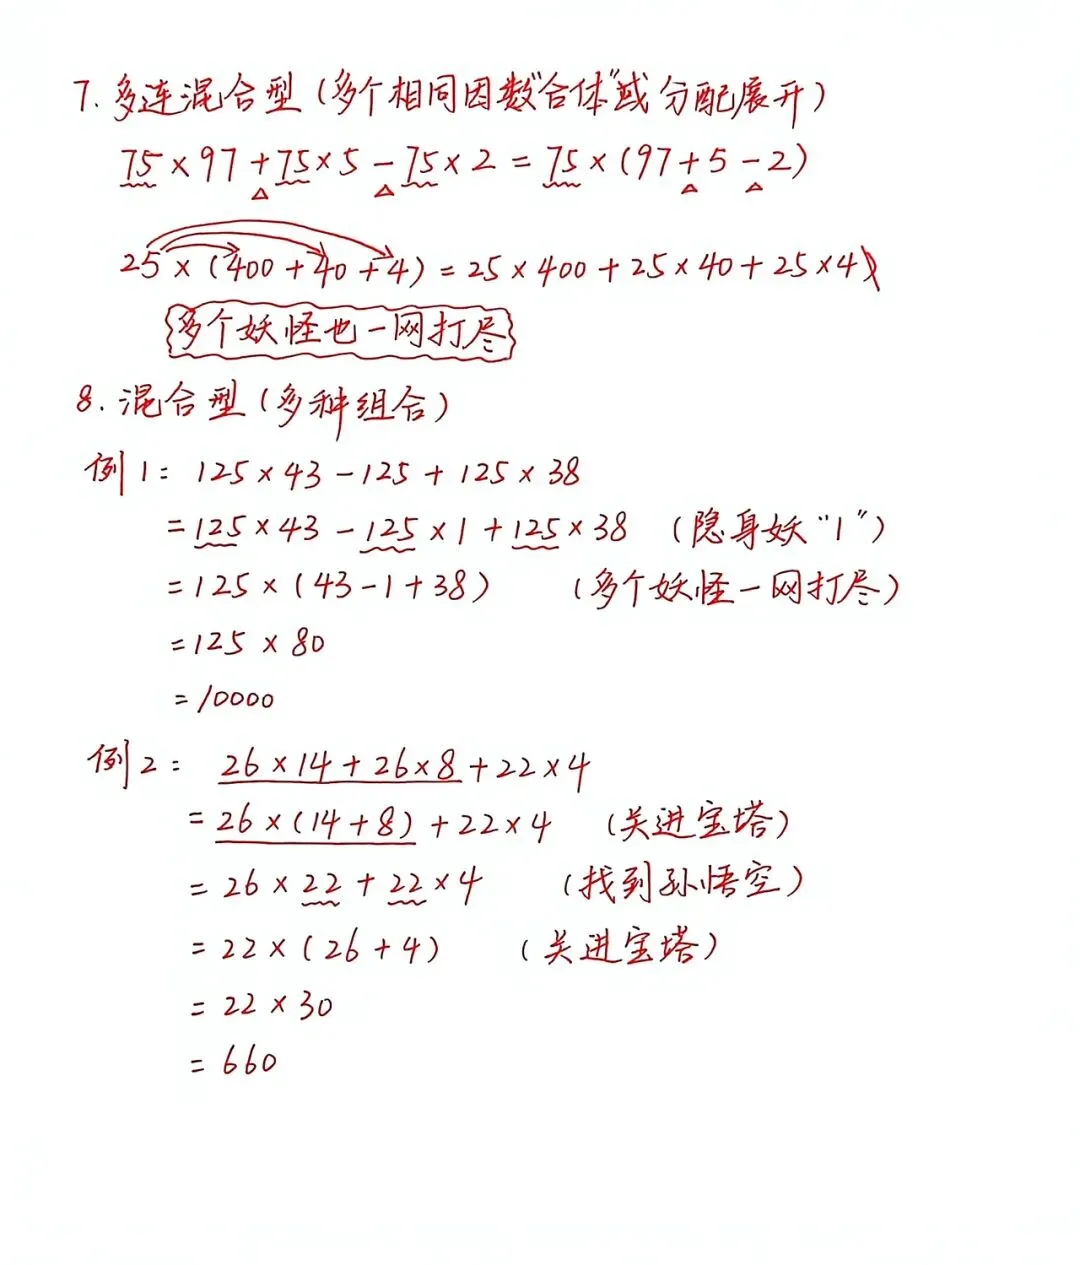 7. 多连混合型(多个相同因数"合体"或分配展开)
75×97+75×5-75×2=75×(97+5-2)
25×(400+40+4)=25×400+25×40+25×4
多个妖怪也一网打尽
8. 混合型(多种组合)
例1: 125×43-125+125×38
=125×43-125×1+125×38 (隐身妖"1")
=125×(43-1+38) (多个妖怪一网打尽)
=125×80
=10000
例2: 26×14+26×8+22×4
=26×(14+8)+22×4 (关进宝塔)
=26×22+22×4 (找到孙悟空)
=22×(26+4) (关进宝塔)
=22×30
=660